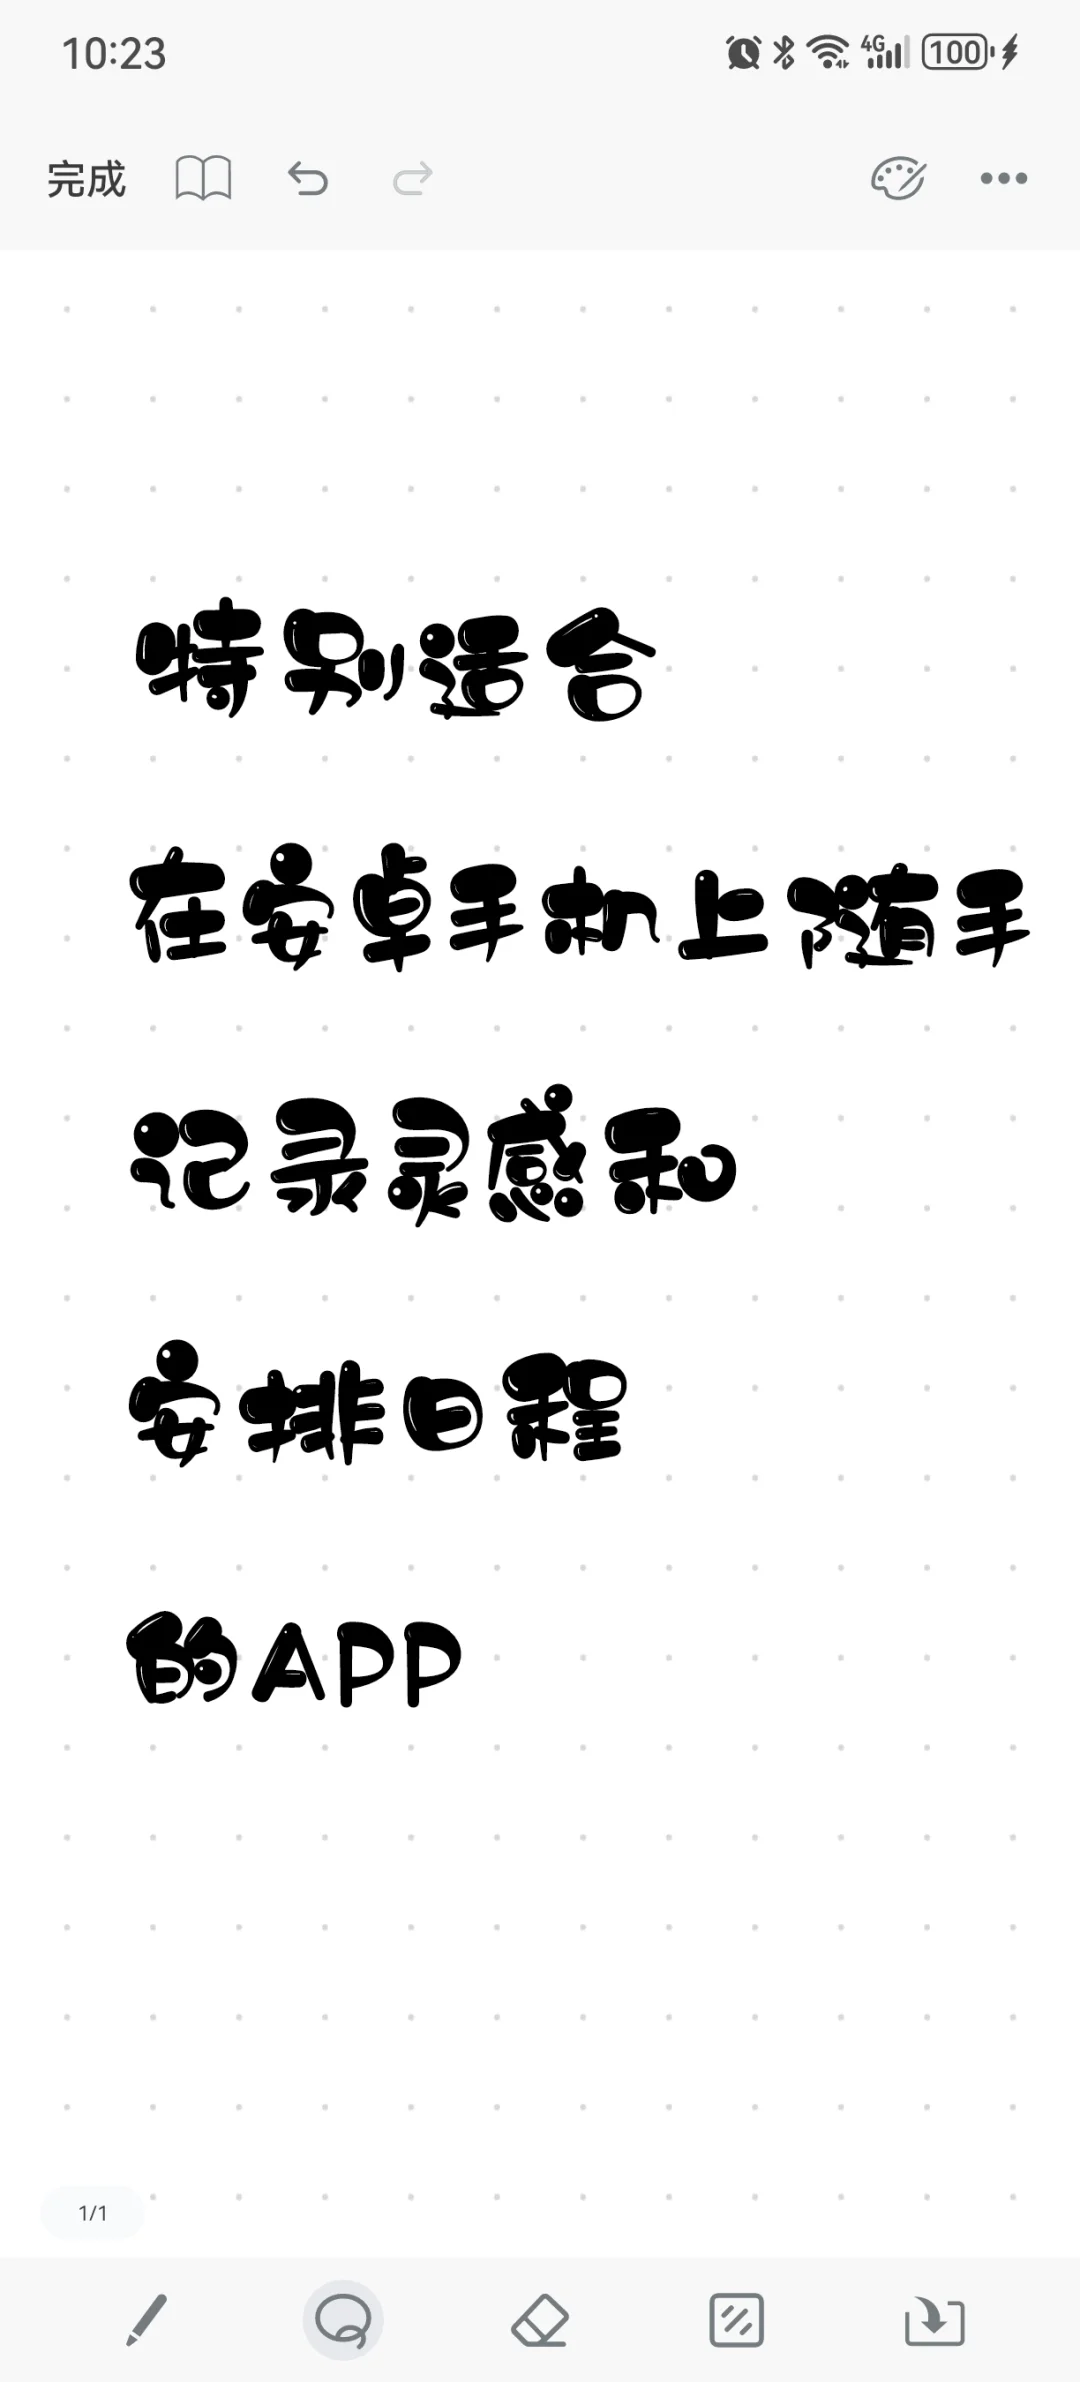 10:23
4G
100
完成
特别适合
在安卓手机上随手
记录灵感和
安排日程
的APP
1/1